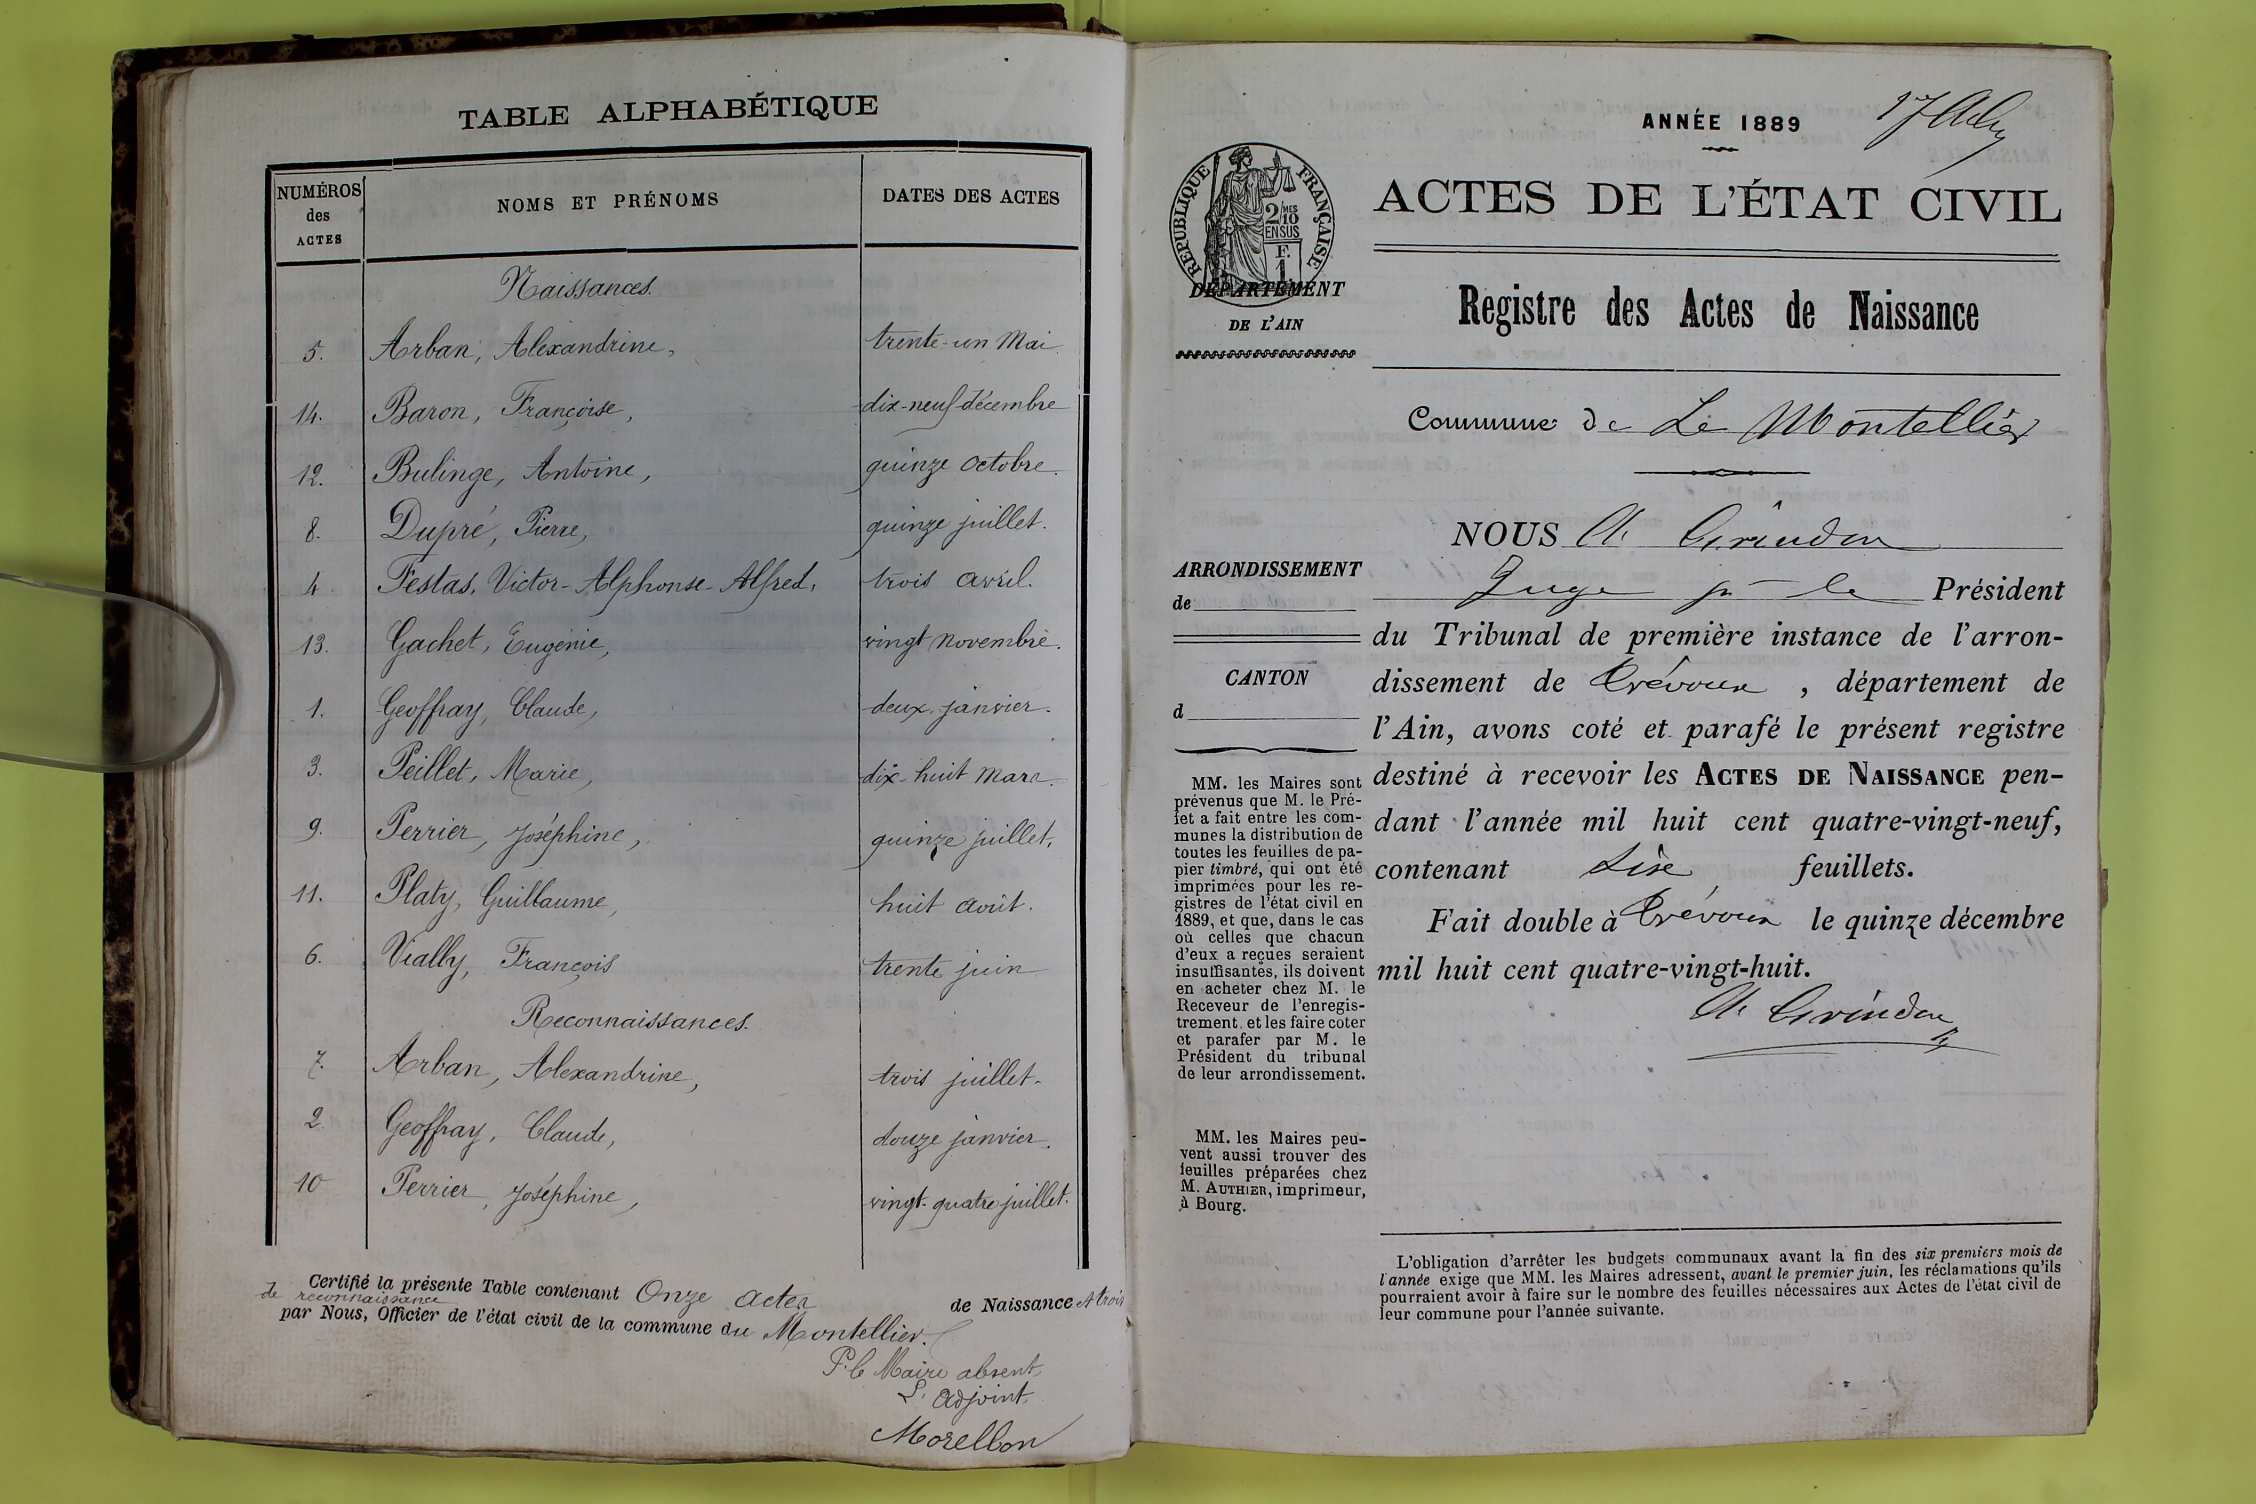 TABLE ALPHABÉTIQUE
NUMÉROS des ACTES
NOMS ET PRÉNOMS
DATES DES ACTES
Naissances.
5. Arban, Alexandrine, trente-un Mai
14. Baron, Françoise, dix-neuf décembre
12. Bulinge, Antoine, quinze octobre.
8. Dupré, Pierre, quinze juillet.
4 Festas, Victor-Alphonse-Alfred, trois avril.
13. Gachet, Eugénie, vingt novembre.
1. Geoffray, Claude, deux janvier.
3. Peillet, Marie, dix-huit Mars.
9. Perrier, Joséphine, quinze juillet.
11. Platy, Guillaume, huit août.
6. Vially, François trente juin
Reconnaissances.
7. Arban, Alexandrine, trois juillet.
2 Geoffray, Claude, douze janvier.
10 Perrier, Joséphine, vingt-quatre juillet.
Certifié la présente Table contenant Onze actes de Naissance et trois
de reconnaissance
par Nous, Officier de l'état civil de la commune du Montellier.
P. le Maire absent,
L'adjoint,
Morellon
ANNÉE 1889
ACTES DE L'ÉTAT CIVIL
RÉPUBLIQUE FRANÇAISE
2/10 MES
EN SUS
F.
1
DÉPARTEMENT
DE L'AIN
Registre des Actes de Naissance
Commune de Le Montellier
NOUS Grindon
ARRONDISSEMENT
de
CANTON
d
Juge pr le Président
du Tribunal de première instance de l'arron-
dissement de Trévoux, département de
l'Ain, avons coté et parafé le présent registre
destiné à recevoir les ACTES DE NAISSANCE pen-
dant l'année mil huit cent quatre-vingt-neuf,
contenant feuillets.
Fait double à Trévoux le quinze décembre
mil huit cent quatre-vingt-huit.
Grindon
MM. les Maires sont
prévenus que M. le Pré-
fet a fait entre les com-
munes la distribution de
toutes les feuilles de pa-
pier timbré, qui ont été
imprimées pour les re-
gistres de l'état civil en
1889, et que, dans le cas
où celles que chacun
d'eux a reçues seraient
insuffisantes, ils doivent
en acheter chez M. le
Receveur de l'enregis-
trement, et les faire coter
et parafer par M. le
Président du tribunal
de leur arrondissement.
MM. les Maires peu-
vent aussi trouver des
feuilles préparées chez
M. AUTHIER, imprimeur,
à Bourg.
L'obligation d'arrêter les budgets communaux avant la fin des six premiers mois de
l'année exige que MM. les Maires adressent, avant le premier juin, les réclamations qu'ils
pourraient avoir à faire sur le nombre des feuilles nécessaires aux Actes de l'état civil de
leur commune pour l'année suivante.